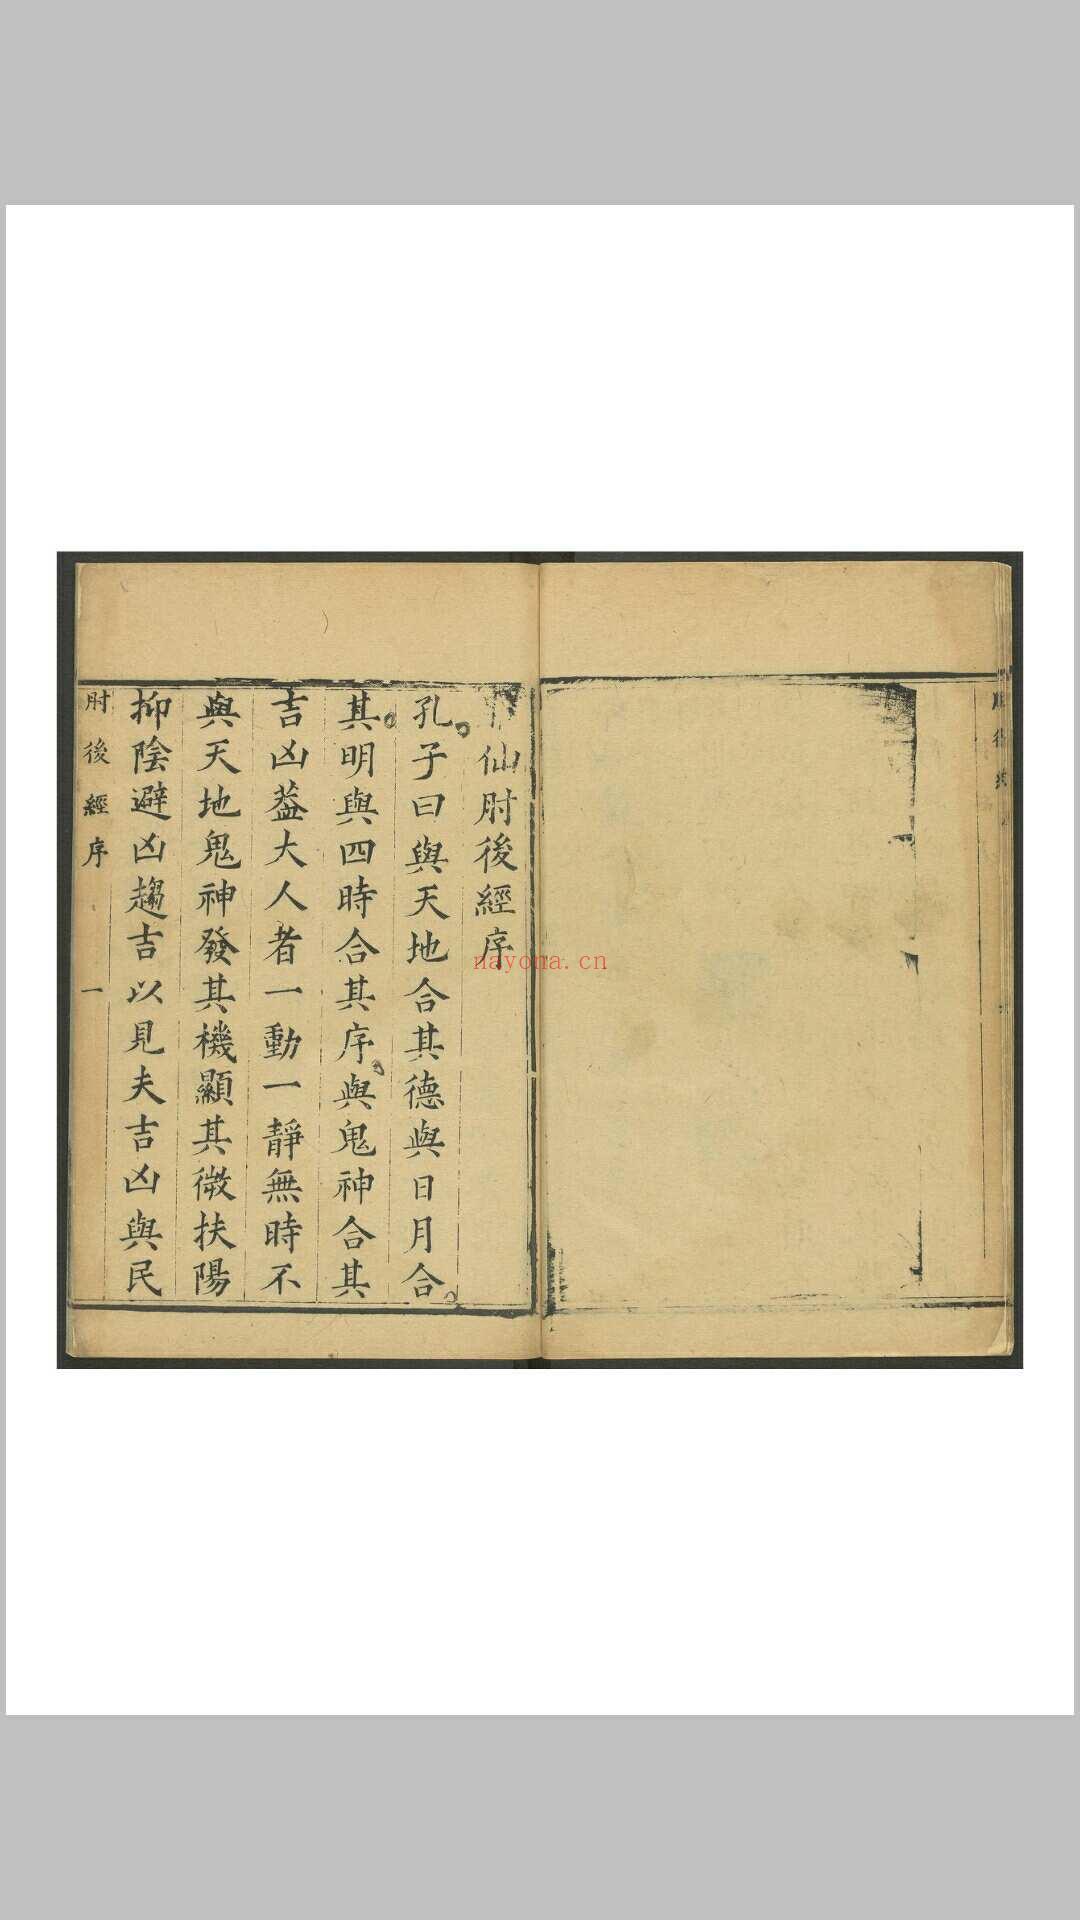 仙肘後經序
孔子曰與天地合其德與日月合
其明與四時合其序與鬼神合其
吉凶葢大人者一動一靜無時不
與天地鬼神發其機顯其微扶陽
抑陰避凶趨吉以見夫吉凶與民
肘後經序 一
nayona.cn